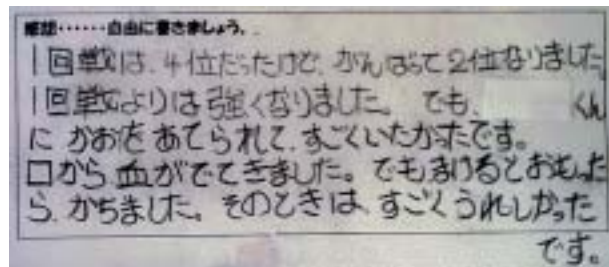 感想……自由に書きましょう。
1回戦は、4位だったけど、がんばって2位なりました
1回戦よりは強くなりました。でも、くん
に かおを あてられて、すごくいたかったです。
口から血がでてきました。でもまけるとおもった
ら、かちました。そのときは、すごくうれしかった
です。